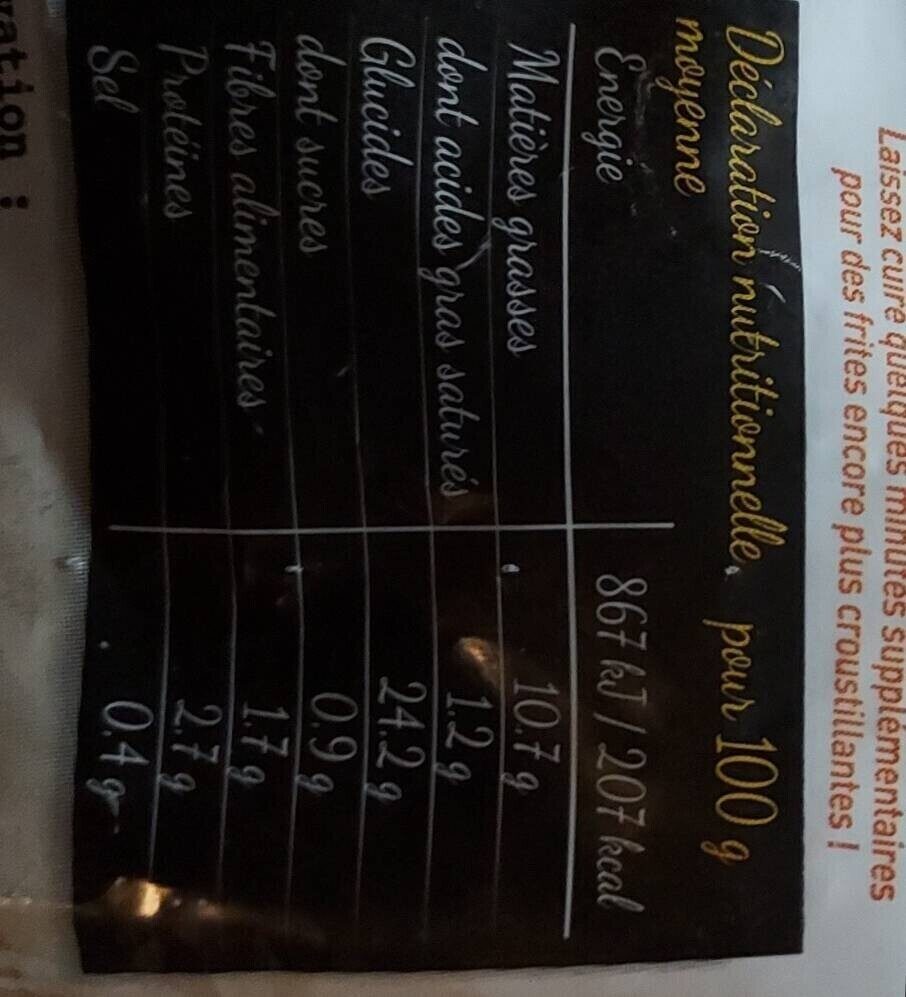 Laissez cuire quelques minutes supplémentaires
pour des frites encore plus croustillantes !
Déclaration nutritionnelle pour 100 g
moyenne
Énergie 867 kJ / 207 kcal
Matières grasses 10.7 g
dont acides gras saturés 1.2 g
Glucides 24.2 g
dont sucres 0.9 g
Fibres alimentaires 1.7 g
Protéines 2.7 g
Sel 0.4 g